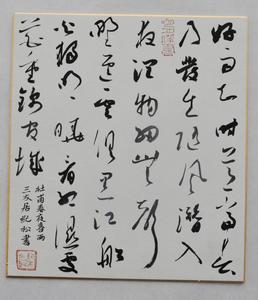 好雨知時節當春
乃發生隨風潛入
夜潤物細無聲
野徑雲俱黑江船
火獨明曉看紅濕處
花重錦官城
杜甫春夜喜雨
松書